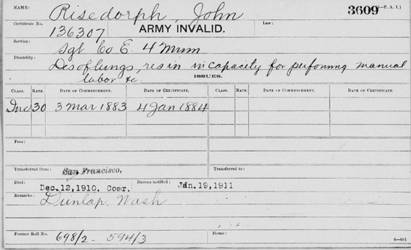 NAME: Risedorph, John 3609 (P.A.I.)
Certificate No. 136307 ARMY INVALID. Law
Service: Sgt Co E 4 Minn
Disability: Dis of lungs, res in incapacity for performing manual
labor &c
ISSUES.
CLASS. RATE. DATE OF COMMENCEMENT. DATE OF CERTIFICATE. CLASS. RATE. DATE OF COMMENCEMENT. DATE OF CERTIFICATE.
Inc 30 3 Mar 1883 4 Jan 1884
Fees:
Transferred from: San Francisco.
Died: Dec.12,1910, Coer. Bureau notified: Jan.19,1911
Remarks: Dunlap, Wash
Former Roll No. 698/2 - 594/3 Home: